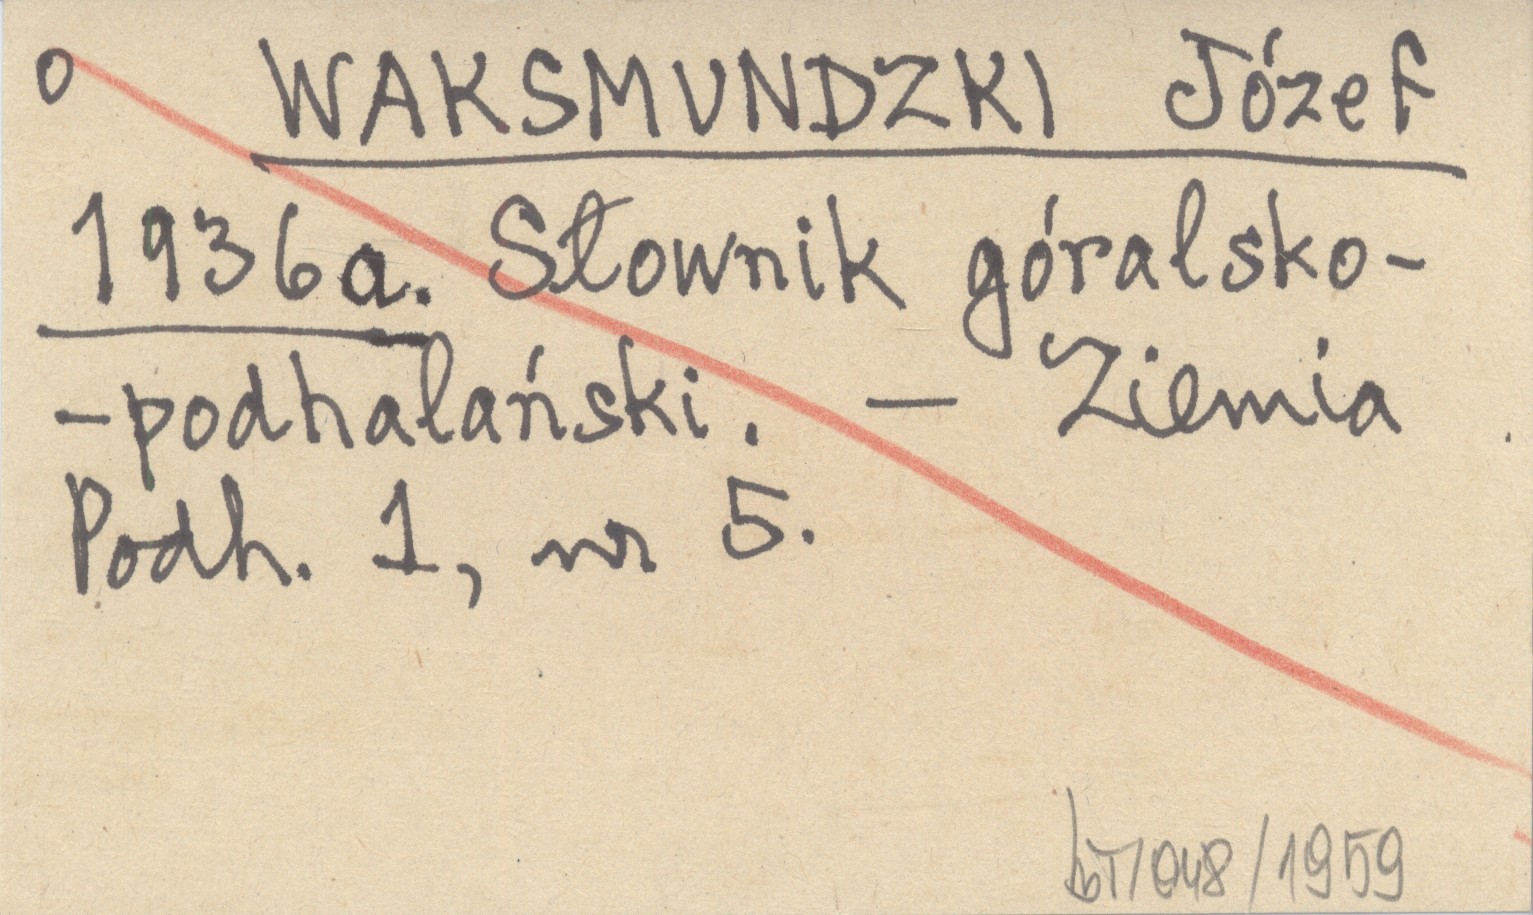 o WAKSMUNDZKI Józef
1936a. Słownik góralsko-
-podhalański. — Ziemia
Podh. 1, nr 5.
/1959